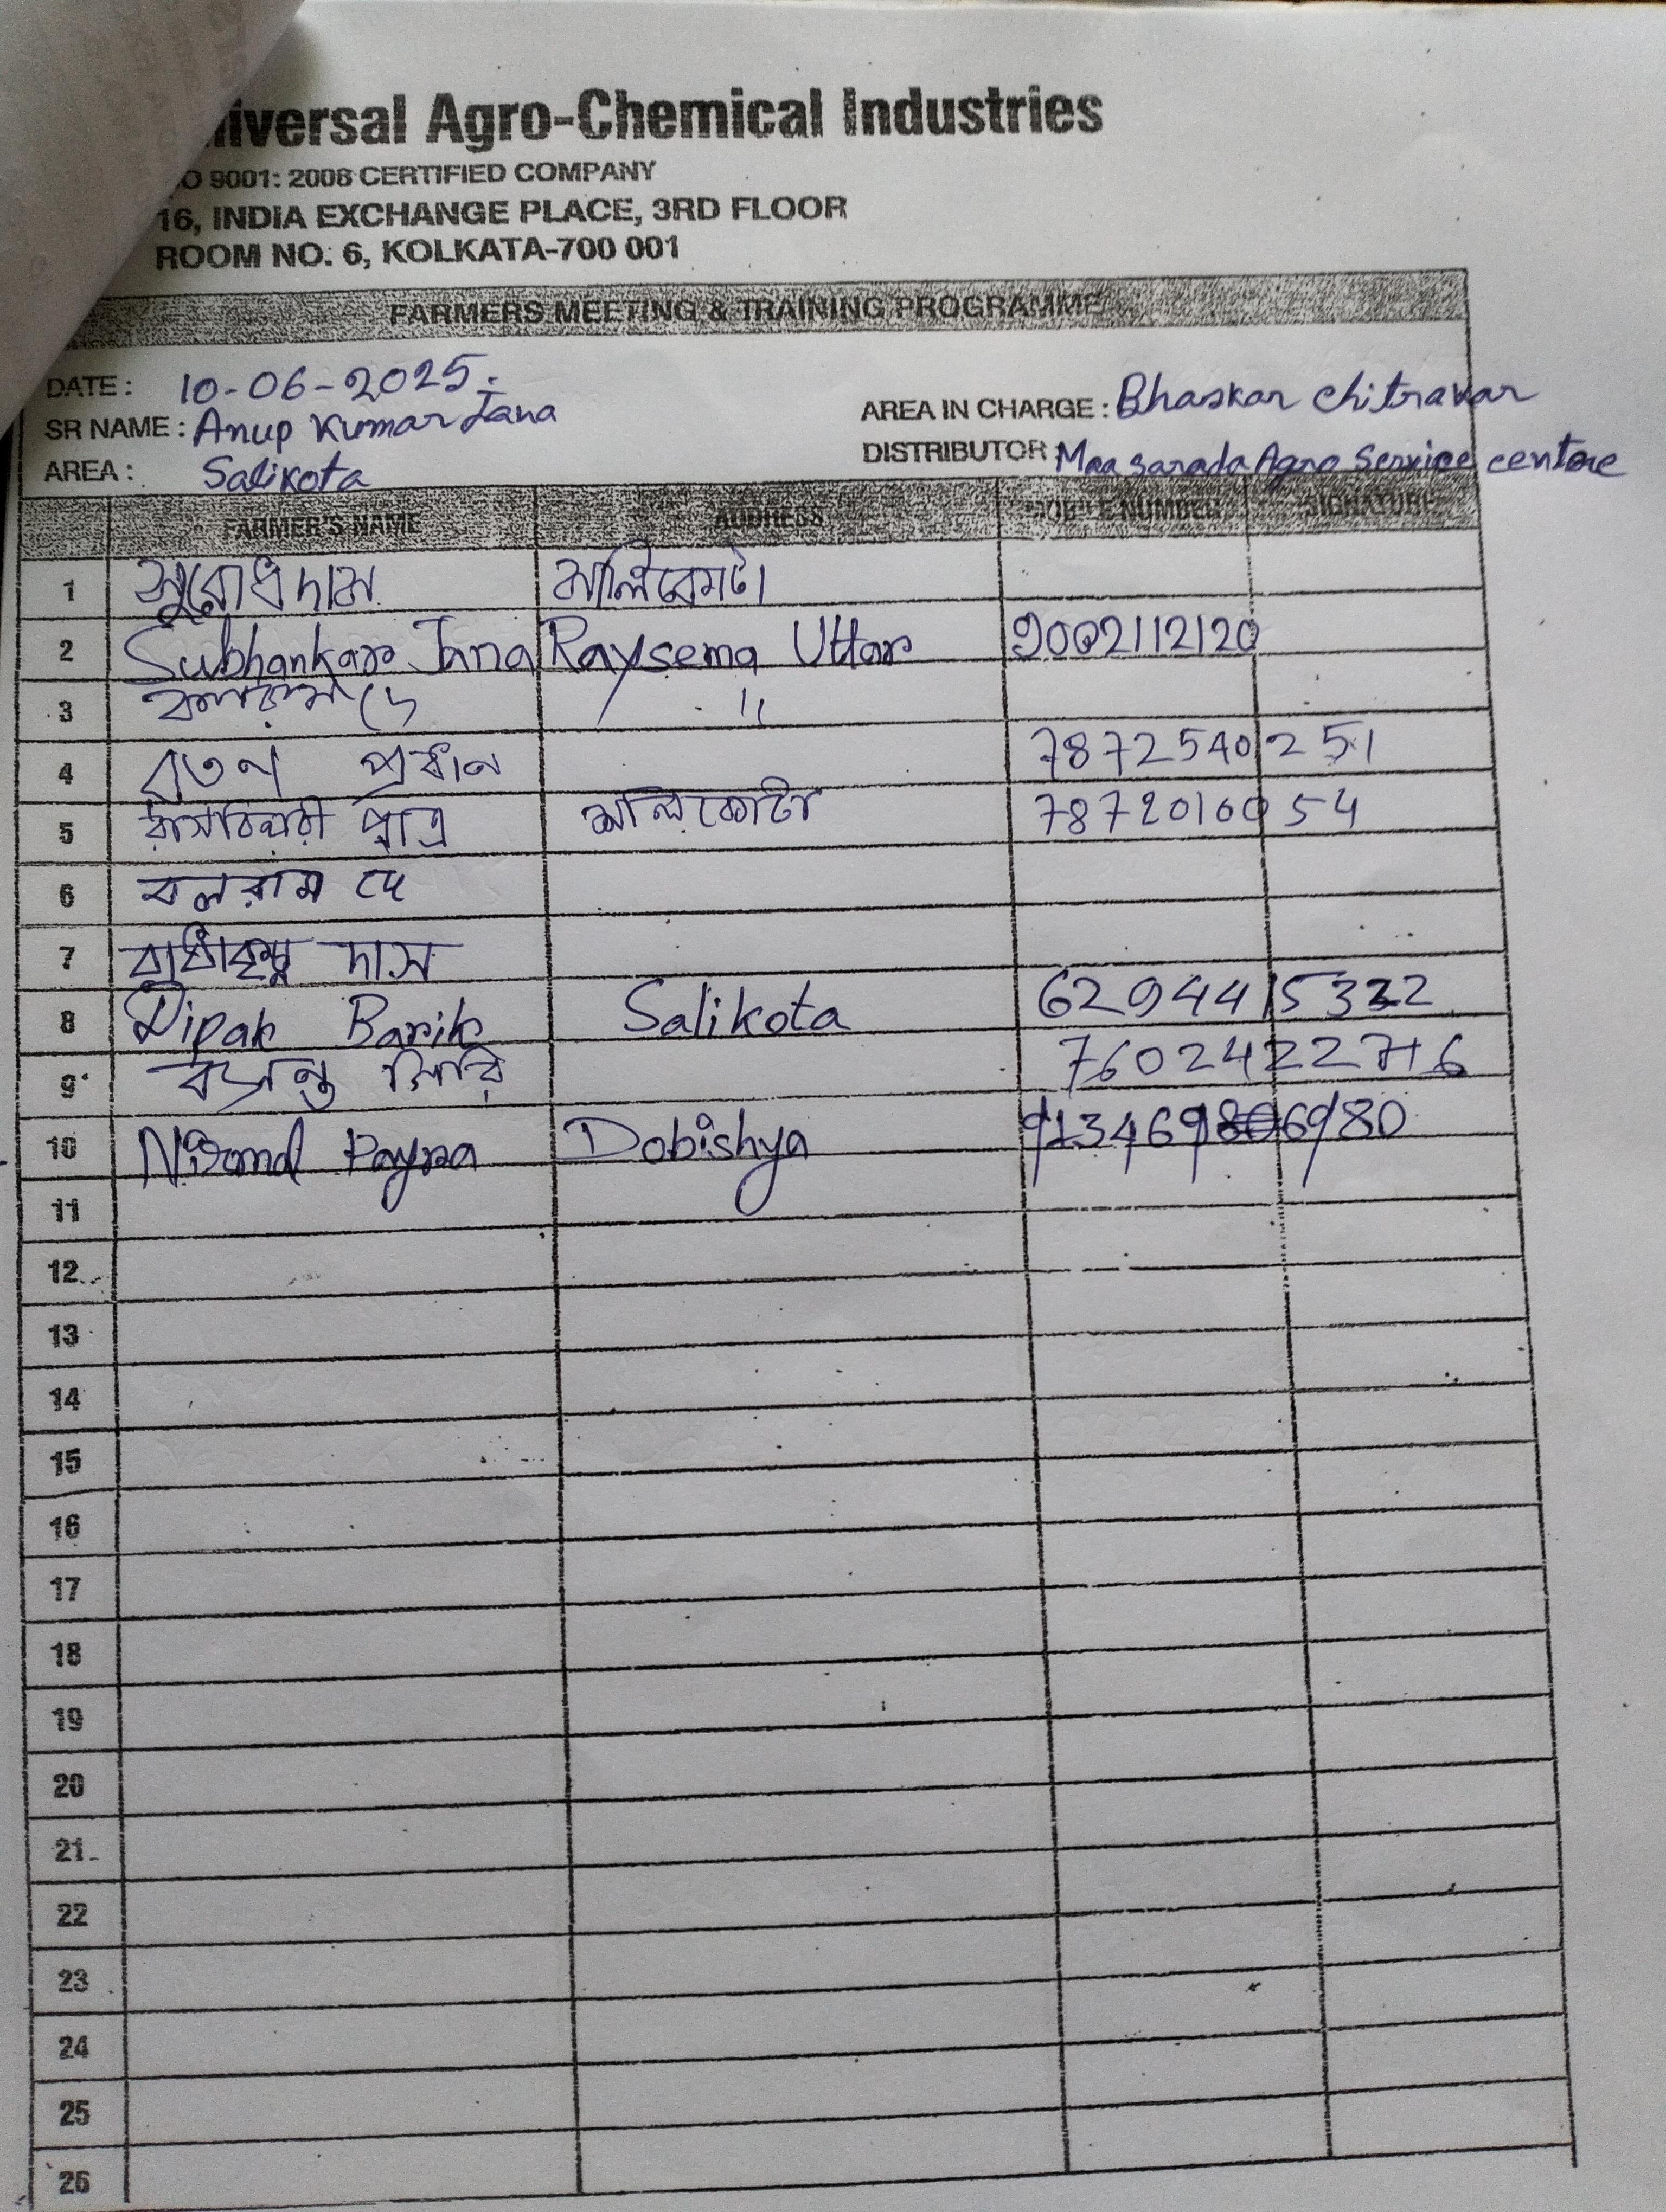 niversal Agro-Chemical Industries
O 9001: 2008 CERTIFIED COMPANY
16, INDIA EXCHANGE PLACE, 3RD FLOOR
ROOM NO. 6, KOLKATA-700 001
FARMERS MEETING & TRAINING PROGRAMME
DATE : 10-06-2025.
SR NAME : Anup Kumar Jana
AREA : Salikota
AREA IN CHARGE : Bhaskar Chitrakar
DISTRIBUTOR : Maa Sarada Agro Service centre
FARMER'S NAME ADDRESS MOBILE NUMBER SIGNATURE
1 সুবোধ দাস
2 Subhankar Jana Raysema Uttar 9002112120
3 বলরাম দে "
4 রতন প্রধান 7872540251
5 রাসবিহারী পাত্র শালিকোটা 7872010054
6 বলরাম দে
7 রাধাকৃষ্ণ দাস
8 Dipak Barik Salikota
9 বসন্ত গিরি
10 Nirmal Payra Dobishya
11
12
13
14
15
16
17
18
19
20
21
22
23
24
25
26